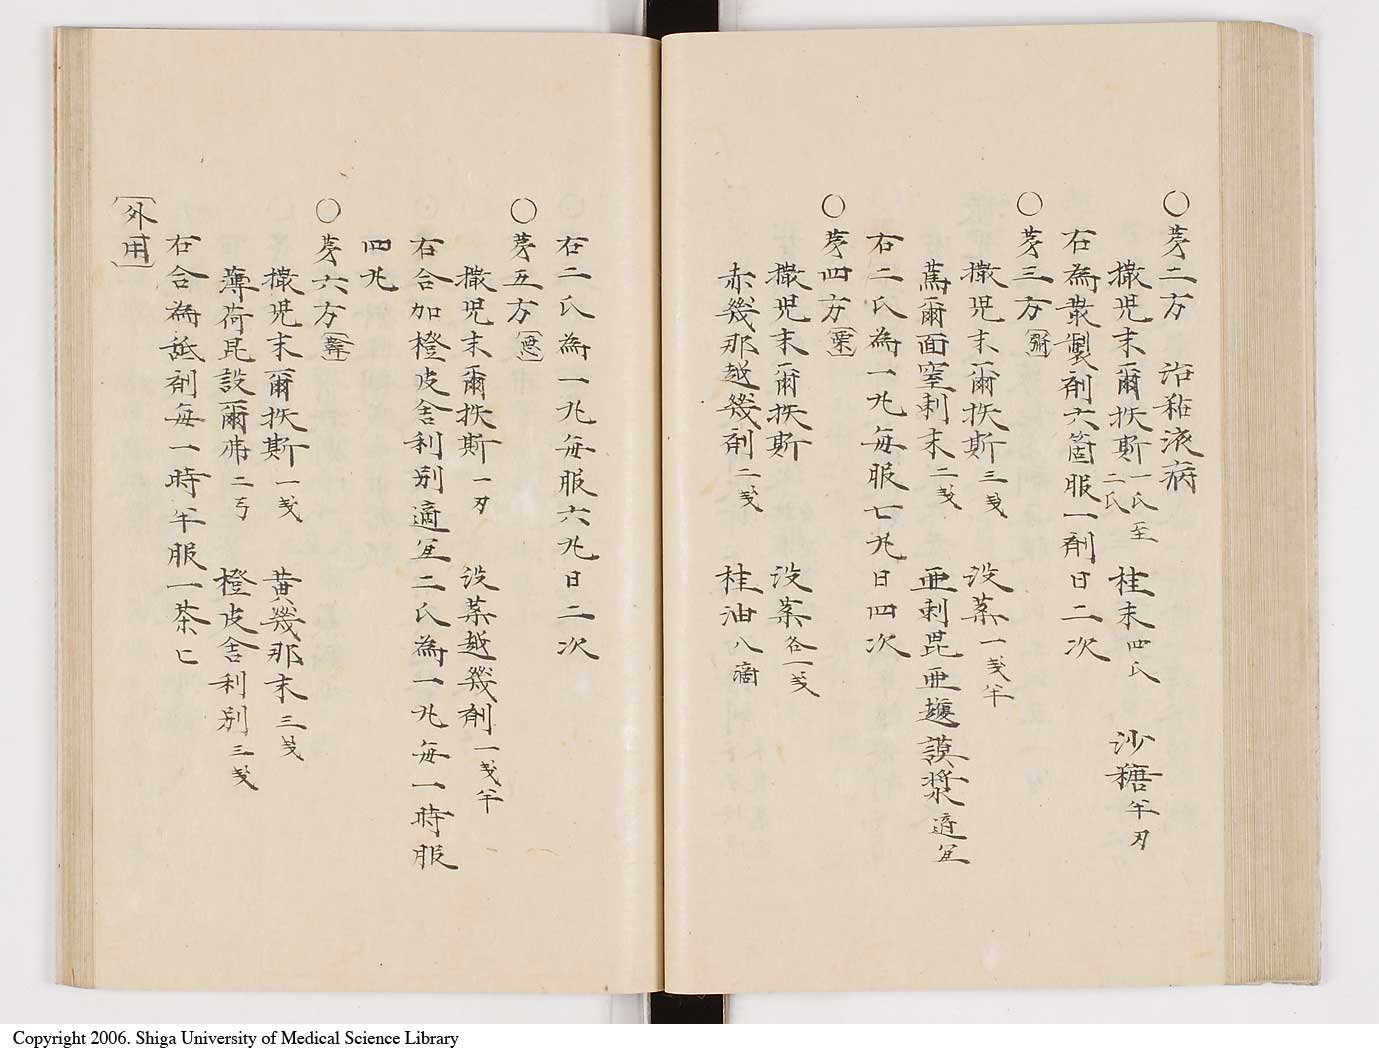 ○第二方 治粘液病
撒児末爾扶斯一氏至二氏 桂末四氏 沙糖半刃
右為散製剤六箇服一剤日二次
○第三方
撒児末爾扶斯三戔 没薬一戔半
萬爾面窒剌末二戔 亜剌毘亜護謨漿適宜
右二氏為一丸毎服七丸日四次
○第四方〔栗〕
撒児末爾扶斯 没薬各一戔
赤幾那越幾剤二戔 桂油八滴
右二氏為一丸毎服六丸日二次
○第五方
撒児末爾扶斯一刃 没薬越幾剤一戔半
右合加橙皮舎利別適宜二氏為一丸毎一時服
四丸
○第六方
撒児末爾扶斯一戔 黄幾那末三戔
薄荷昆設爾弗二丂 橙皮舎利別三戔
右合為舐剤毎一時半服一茶匕
〔外用〕
Copyright 2006. Shiga University of Medical Science Library